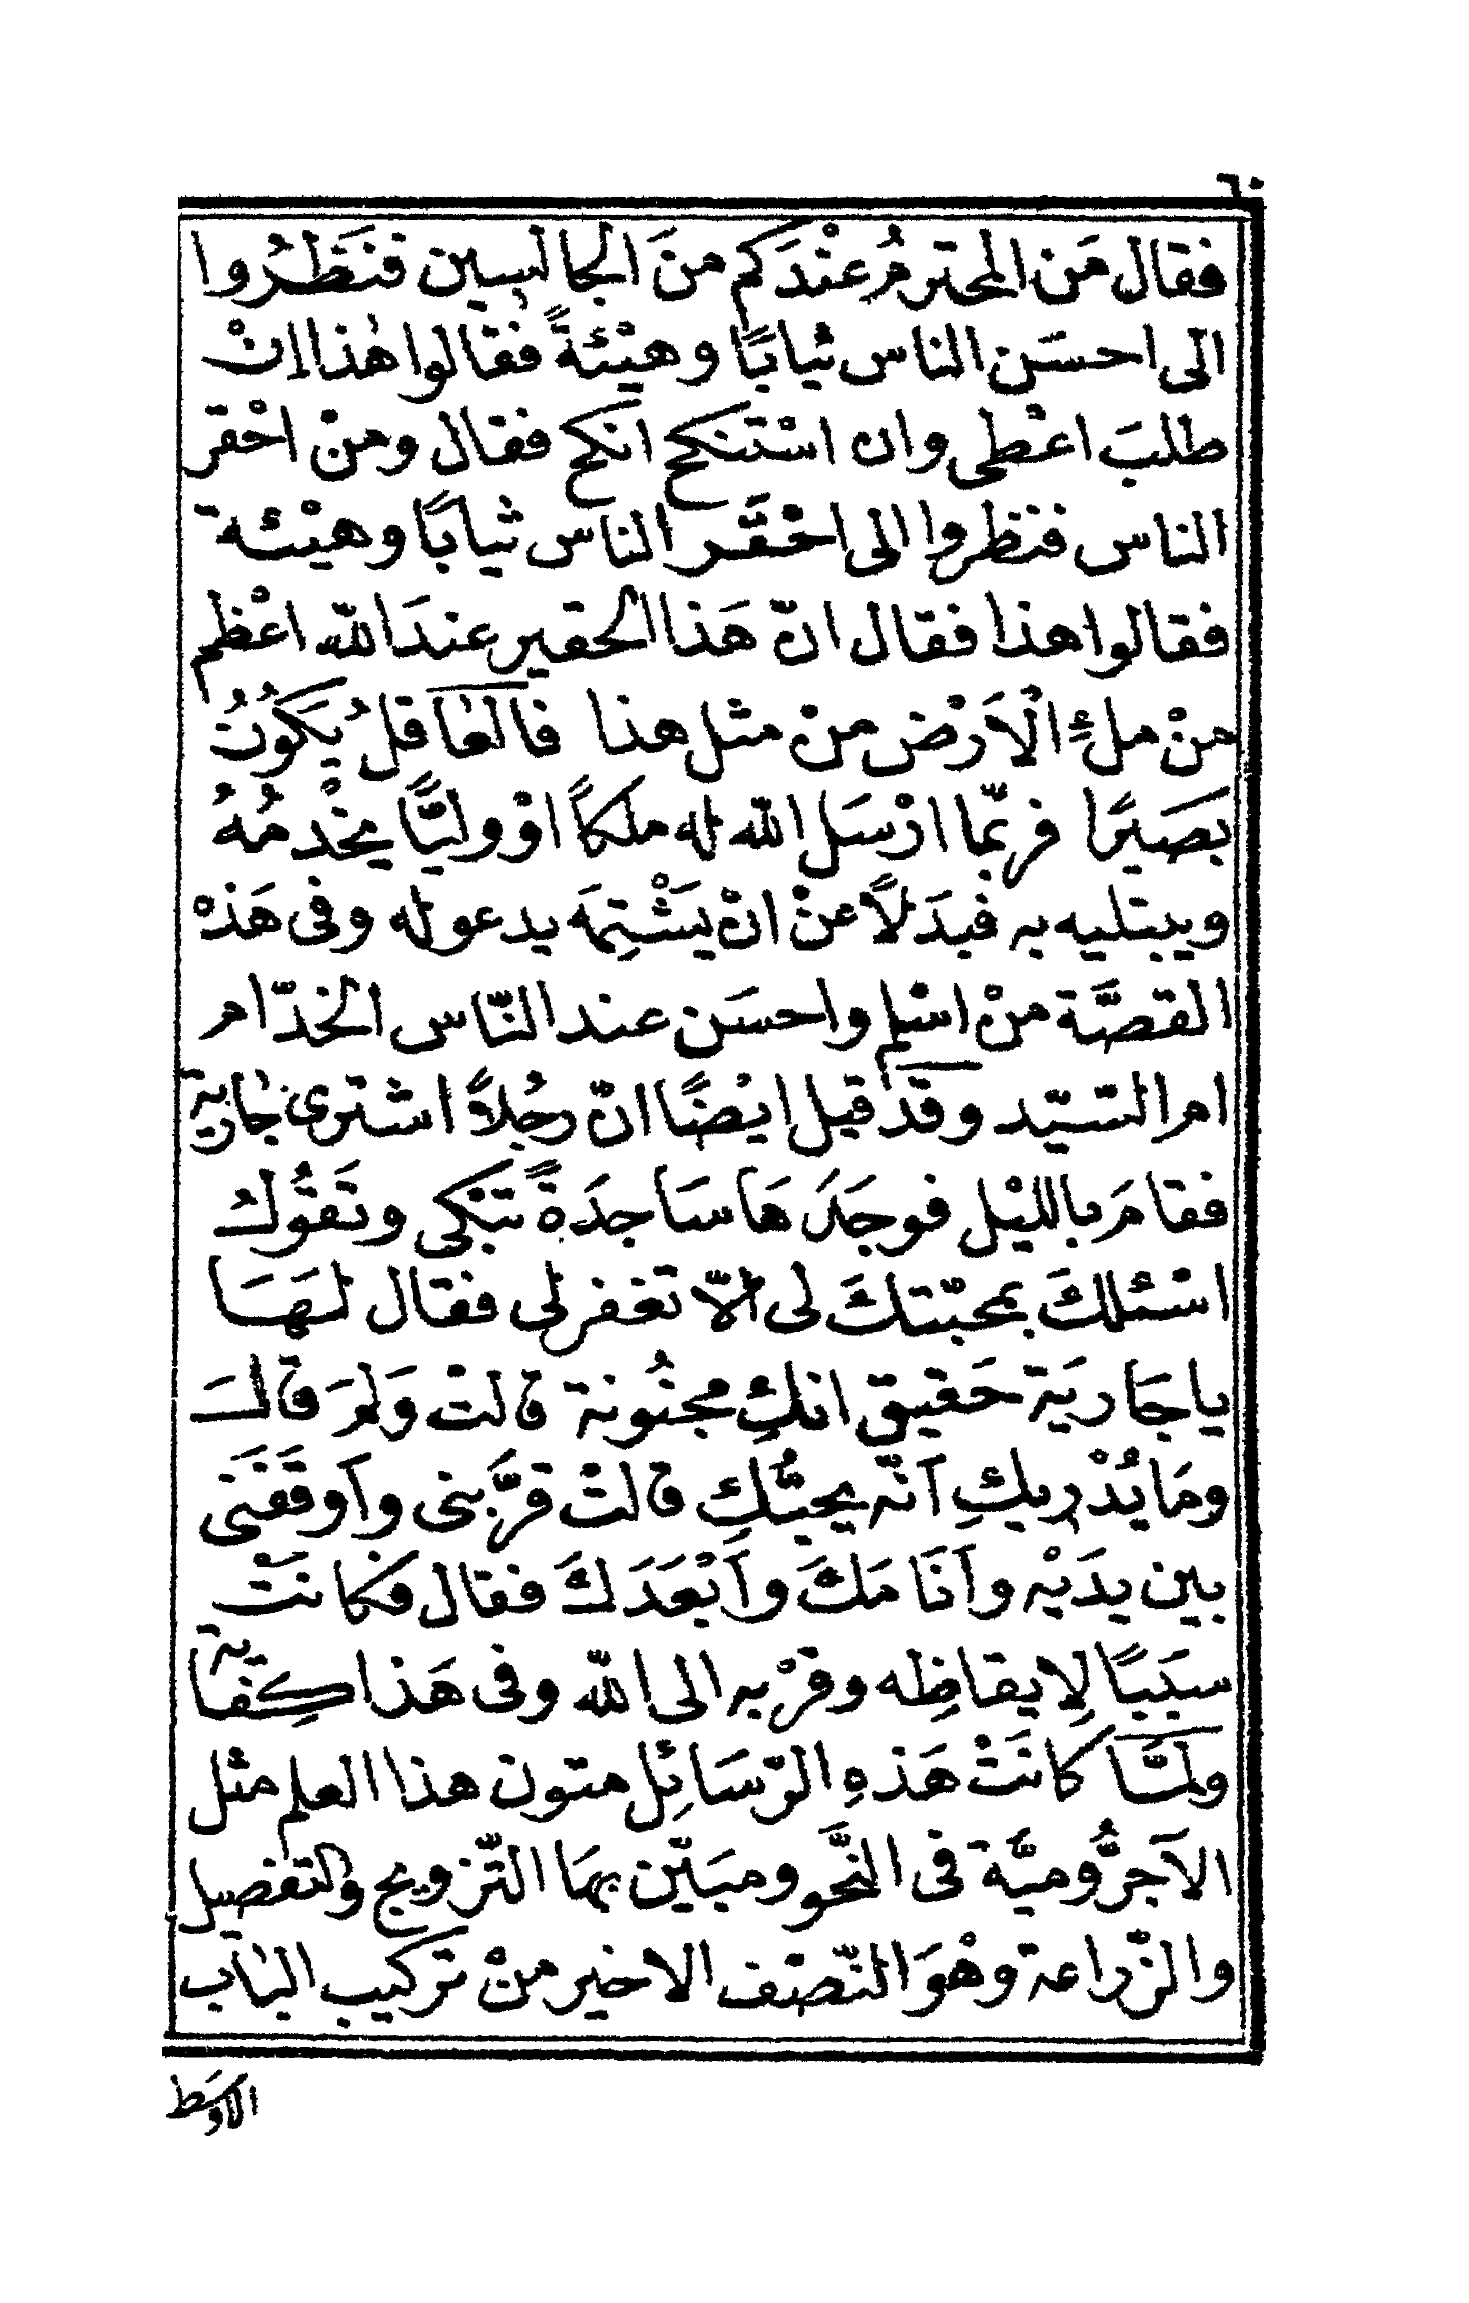 ٦٠
فقال مَن المحترمُ عنْدَكم منَ الجالسين فنَظَرُوا
الى احسَن الناس ثيابًا وهيْئةً فقالوا هٰذا اِنْ
طلبَ اعْطى وان اسْتنكح انكح فقال ومنْ احْقر
الناس فنظروا الى احْقَر الناس ثيابًا وهيْئة
فقالوا هذا فقال انّ هَذا الحقير عندَ الله اعْظم
منْ ملْءِ الْاَرْض منْ مثل هذا فالعٰاقلُ يَكُونُ
بصَيرًا فربّما ارْسَل الله له ملَكاً اوْ وليًّا يخْدمُهُ
ويبتليه به فبدَلًا عنْ انْ يَشْتِمَه يدعو له وفى هَذهْ
القصَّة منْ اسْلم واحسَن عند النّاس الخدّام
ام السّيّد وقد قيل ايْضًا انّ رجُلاً اشترى جٰارية
فقامَ بالليْل فوجَدَ هَا سَاجدَةً تبْكى وتَقُولُ
اسْئلكَ بمحبّتكَ لى الّا تغفر لى فقال لهَا
ياجَاريَة حَقيق انكِ مجنُونة قالتْ وَلمَ قالَ
ومَا يُدْريكِ اَنّه يحبُّكِ قالتْ قرَّبنى واَوقَفَنى
بين يدَيْه واَنَامَكَ واَبْعَدَكَ فقال فكانَتْ
سبَبًا لِايقاظِه وقرْبه الى الله وفى هَذا كِفاية
ولمَّا كانَتْ هَذهِ الرّسَائِل متون هذا العلم مثل
الآجرُّوميَّة فى النَّحو ومبَيّن بهَا التّزويج والتفصيل
والزّراعة وهْوَ النّصْف الاخير منْ تركيب البٰاب
الاوسَط